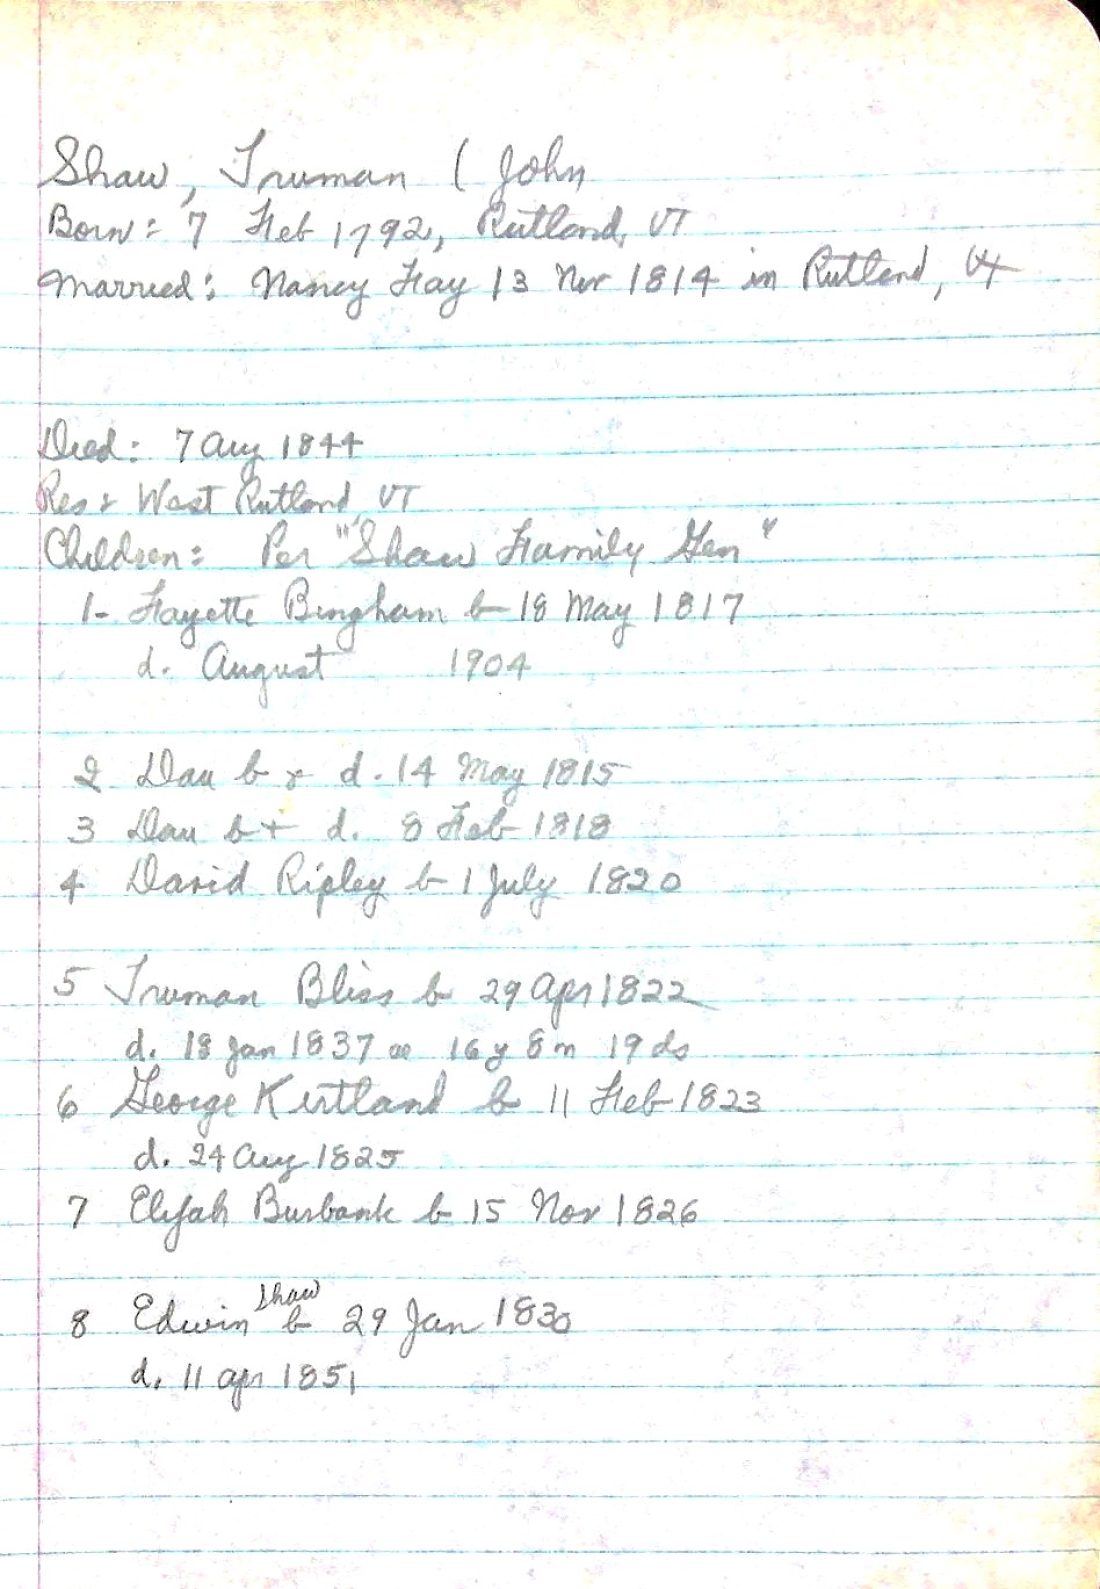 Shaw, Truman ( John
Born: 7 Feb 1792, Rutland, VT
Married: Nancy Fay 13 Nov 1814 in Rutland, Vt
Died: 7 Aug 1844
Res: West Rutland, VT
Children: Per "Shaw Family Gen"
1- Fayette Bingham b 18 May 1817
d. August 1904
2 Dau b & d. 14 May 1815
3 Dau b + d. 8 Feb 1818
4 David Ripley b 1 July 1820
5 Truman Bliss b 29 Apr 1822
d. 18 Jan 1837 ae 16 y 8 m 19 ds
6 George Kirtland b 11 Feb 1823
d. 24 Aug 1825
7 Elijah Burbank b 15 Nov 1826
8 Edwin Shaw b 29 Jan 1830
d. 11 apr 1851